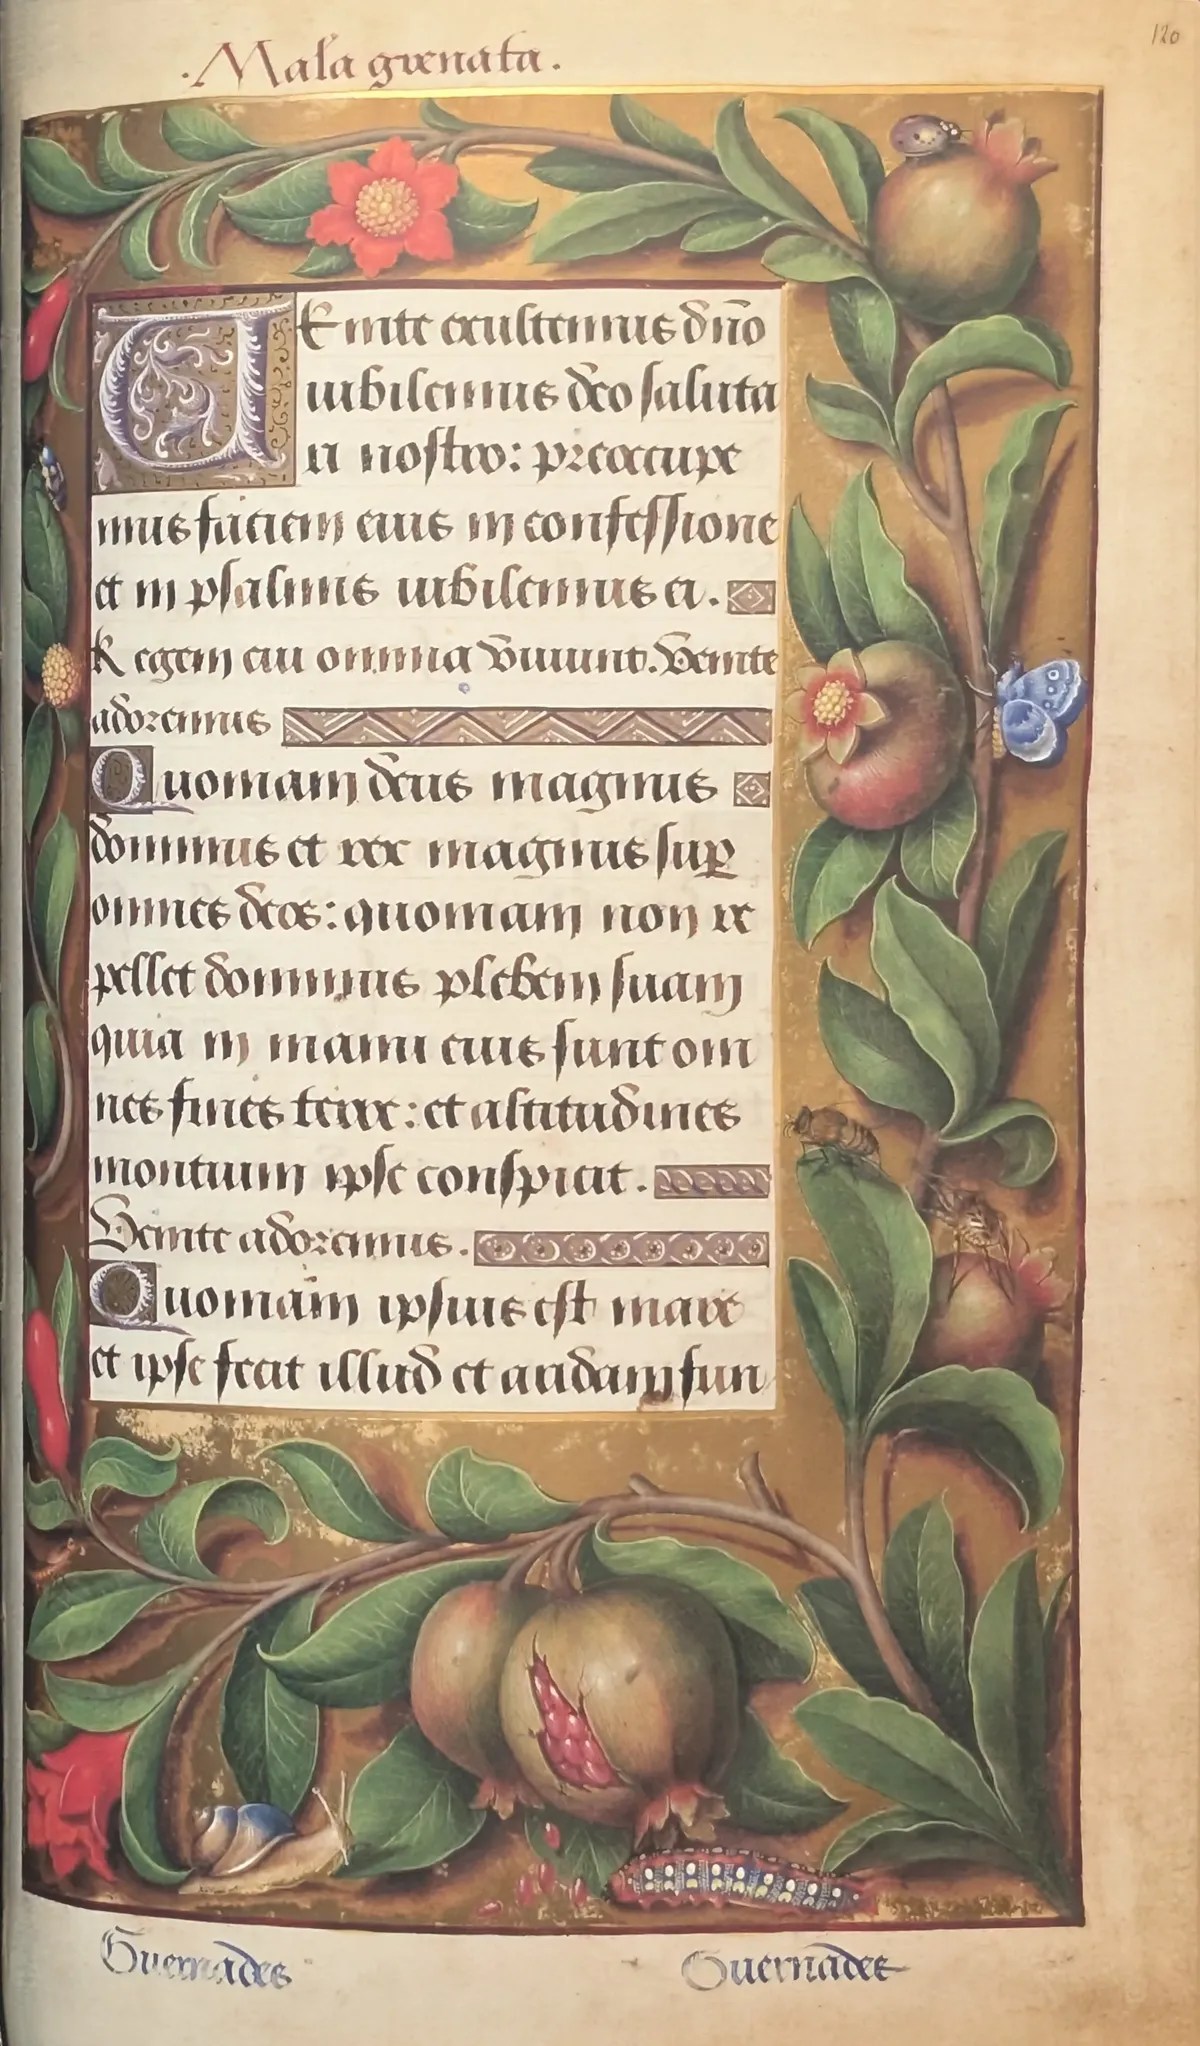 120
.Mala grenata.
VEnite exultemus dño
iubilemus deo saluta
ri nostro: preoccupe
mus faciem eius in confessione
et in psalmis iubilemus ei.
Regem cui omnia viuunt. Venite
adoremus
Quoniam deus magnus
dominus et rex magnus sup
omnes deos: quoniam non re
pellet dominus plebem suam
quia in manu eius sunt om
nes fines terre: et altitudines
montium ipse conspicit.
Venite adoremus.
Quoniam ipsius est mare
et ipse fecit illud et aridam fun
Guernades Guernades